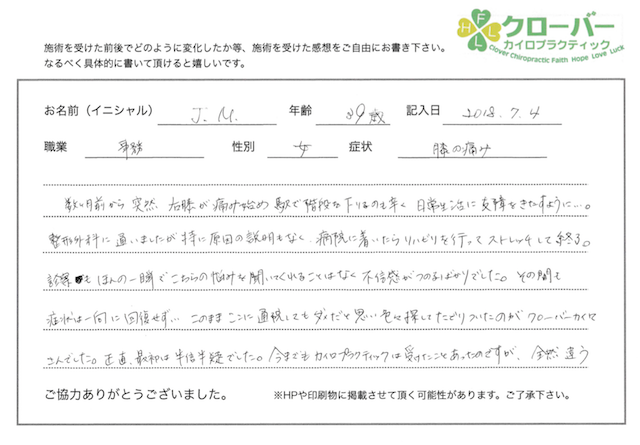 HFLL
クローバー
カイロプラクティック
Clover Chiropractic Faith Hope Love Luck
施術を受けた前後でどのように変化したか等、施術を受けた感想をご自由にお書き下さい。
なるべく具体的に書いて頂けると嬉しいです。
お名前（イニシャル） J. M. 年齢 39歳 記入日 2018. 7. 4
職業 事務 性別 女 症状 膝の痛み
数ヶ月前から突然、右膝が痛み始め駅で階段を下りるのも辛く日常生活に支障をきたすように…。
整形外科に通いましたが特に原因の説明もなく、病院に着いたらリハビリを行ってストレッチして終る。
診察もほんの一瞬でこちらの悩みを聞いてくれることはなく不信感がつのるばかりでした。その間も
症状は一向に回復せず… このままここに通院してもダメだと思い色々探してたどりついたのがクローバーカイロ
さんでした。正直、最初は半信半疑でした。今までもカイロプラクティックは受けたことあったのですが、全然違う
ご協力ありがとうございました。 ※HPや印刷物に掲載させて頂く可能性があります。ご了承下さい。